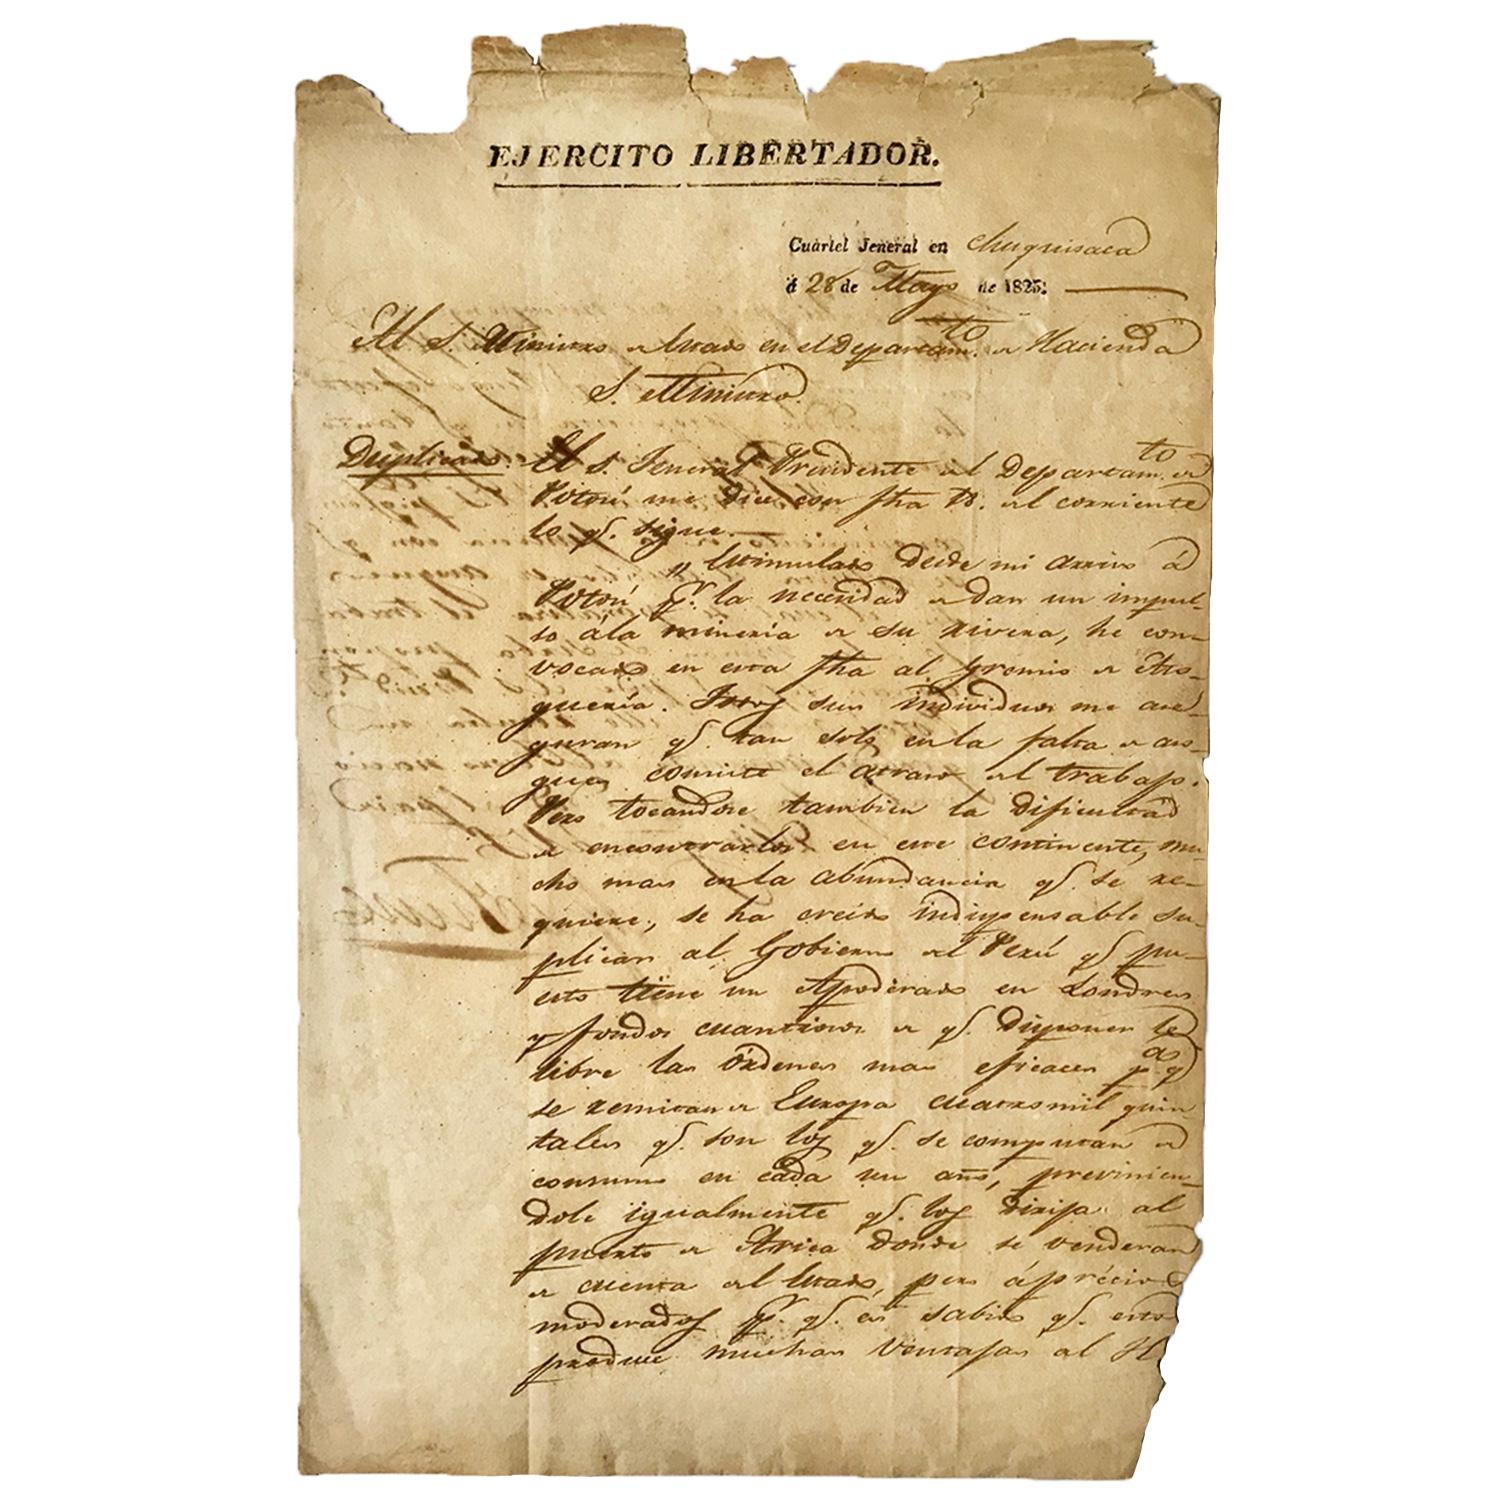 EJERCITO LIBERTADOR.
Cuartel Jeneral en Chuquisaca
á 28 de Mayo de 1825.
Al S. Ministro de Estado en el Departam.to de Hacienda
S. Ministro.
Duplicado. El S. Jeneral Presidente del Departam.to de
Potosí me dice con fha 18. del corriente
lo q.e sigue.
„ Estimulado desde mi arrivo á
Potosí p.r la necesidad de dar un impul-
so á la minería de su rivera, he con-
vocado en esta fha al gremio de Aso-
guería. Todos sus individuos me ase-
guran q.e tan solo en la falta de aso-
gues consiste el atraso del trabajo.
Pero tocandose tambien la dificultad
de encontrarlos en este continente, mu-
cho mas en la abundancia q.e se re-
quiere, se ha creido indispensable su-
plicar al Gobierno del Perú q.e pu-
esto tiene un Apoderado en Londres
y fondos cuantiosos de q.e disponer le
libre las órdenes mas eficaces p.as q.e
se remitan de Europa cuatro mil quin-
tales q.e son los q.e se computan de
consumo en cada un año, previnien-
dole igualmente q.e los dirija al
puerto de Arica donde se venderan
de cuenta del Estado, pero á précios
moderados p.r q.e es sabido q.e esto
produce muchas ventajas al